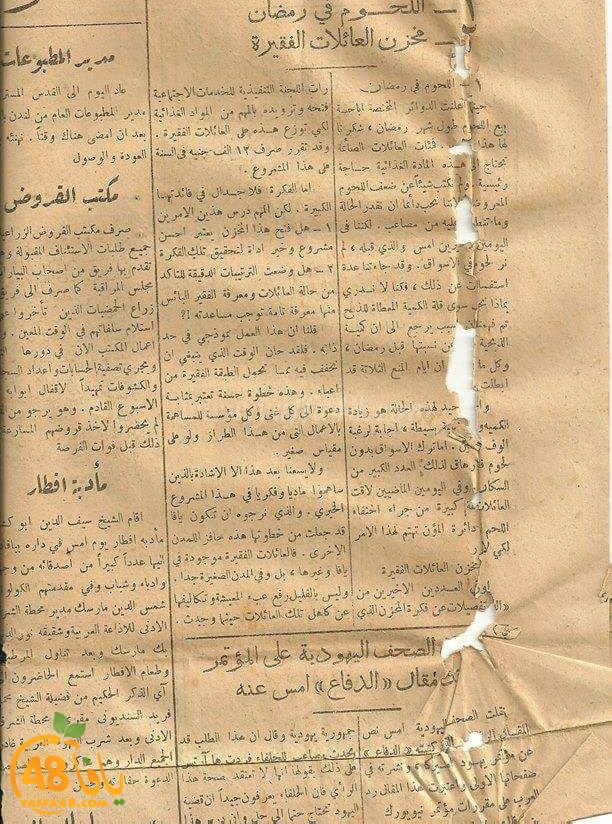 ١ — اللحوم في رمضان
٢ — مخزن العائلات الفقيرة
١ — اللحوم في رمضان
حينما أعلنت الدوائر المختصة اباحة
بيع اللحوم طول شهر رمضان ، شكرنا
لها هذا فئات العائلات الصائمة
تحتاج الى هذه المادة الغذائية حاجة
رئيسية . ولم نكتب شيئاً عن ضعف اللحوم
المعروضة لأننا نحب دائما ان نقدر الحالة
وما من مصاعب . لكننا في
اليومين امس والذي قبله ، لم
نر لحوم الاسواق . وقد جاءتنا عدة
استفسارات عن ذلك ، فكنا لا ندري
بماذا نجيب سوى قلة الكمية المعطاة للذبح
ثم فهمنا السبب يرجع الى ان كمية
الذبحية نسبتها قبل رمضان ،
وكل ما ان ايام المنع الثلاثة قد
ابطلت
لهذه الحالة هو زيادة
الكمية بسيطة ، اجابة لرغبة
الوف اما ترك الاسواق بدون
لحوم فارهاق لذلك العدد الكبير من
السكان وفي اليومين الماضيين لاقت
العائلات كبيرة من جراء اختفاء
اللحم دائرة المؤن تهتم لهذا الامر
لكي
مخزن العائلات الفقيرة
العددين الاخيرين من
التفصيلات عن فكرة المخزن الذي
رأت اللجنة التنفيذية للخدمات الاجتماعية
فتحه وتزويده بالمهم من المواد الغذائية
لكي توزع هذه على العائلات الفقيرة .
وقد تقرر صرف ١٢ الف جنيه في السنة
على هذا المشروع .
اما الفكرة فلا جدال في فائدتها
الكبيرة . لكن المهم درس هذين الامرين
١ — هل فتح هذا المخزن يعتبر احسن
مشروع وخير اداة لتحقيق تلك الفكرة
٢ — هل وضعت الترتيبات الدقيقة للتأكد
من حالة العائلات ومعرفة الفقير البائس
منها معرفة تامة توجب مساعدته ؟!
قلنا ان هذا العمل نموذجي في حد
ذاته . فلقد حان الوقت الذي ينبغي ان
تخفف فيه مما تحمل الطبقة الفقيرة من
اعباء . وهذه خطوة حسنة تعتبر بمثابة
دعوة الى كل غني وكل مؤسسة للمساهمة
بالاعمال التي من هذا الطراز ولو على
مقياس صغير .
ولا يسعنا بعد هذا الا الاشادة بالذين
ساهموا ماديا وفكريا في هذا المشروع
الخيري . والذي نرجوه ان تكون يافا
قد جعلت من خطوتها هذه حافز اللمدن
الاخرى . فالعائلات الفقيرة موجودة في
يافا وغيرها ، بل وفي المدن الصغيرة جدا .
وليس بالقليل رفع عبء المعيشة وتكاليفها
عن كاهل تلك العائلات حيثما وجدت .
مدير المطبوعات
عاد اليوم الى القدس المستر
مدير المطبوعات العام من لندن
بعد ان امضى هناك وقتاً . نهنئه
العودة والوصول
مكتب القروض
صرف مكتب القروض الزراعية
جميع طلبات الاستئناف المقبولة
تقدم بها فريق من اصحاب البيارات
مجلس المراقبة كما صرف الى فريق
زراع الحمضيات الذين تأخروا عن
استلام سلفاتهم في الوقت المعين .
اعمال المكتب الآن في دورها
ومجري تصفية الحسابات واعداد السجلات
والكشوفات تمهيداً لاقفال ابوابه
الاسبوع القادم . وهو يرجو من الذين
لم يحضروا لاخذ قروضهم المسارعة
ذلك قبل فوات الفرصة
مأدبة افطار
اقام الشيخ سيف الدين ابو
مأدبة افطار يوم امس في داره بيافا
اليها عدداً كبيراً من أصدقائه من
وادباء وشباب وفي مقدمتهم
شمس الدين مارسك مدير محطة الشرق
الادنى للاذاعة العربية وشقيقه نور الدين
بك مارسك وبعد تناول المرطبات
وطعام الافطار استمع الحاضرون الى
آي الذكر الحكيم من فضيلة الشيخ محمد
فريد السنديوني مقرىء محطة الشرق
الادنى وبعد شرب
الجميع الدار وهم
الدعوة
الصحف اليهودية على المؤتمر
مقال «الدفاع» امس عنه
نقلت الصحف اليهودية امس نص
المقال الذي كتبته «الدفاع»
عن مؤتمر يهود ونشرته في
صفحاتها الاولى واعتبرت هذا المقال رد
العرب على مقررات مؤتمر نيويورك
جمهورية يهودية وقال ان هذا الطلب قد
يحدث مصاعب للحلفاء فردت
على ذلك بقولها انها لا تعتقد صحة هذا
الرأي فان الحلفاء يعرفون جيداً ان قضية
اليهود تحتاج حتما الى حل
يافا 48
YAFFA48.COM